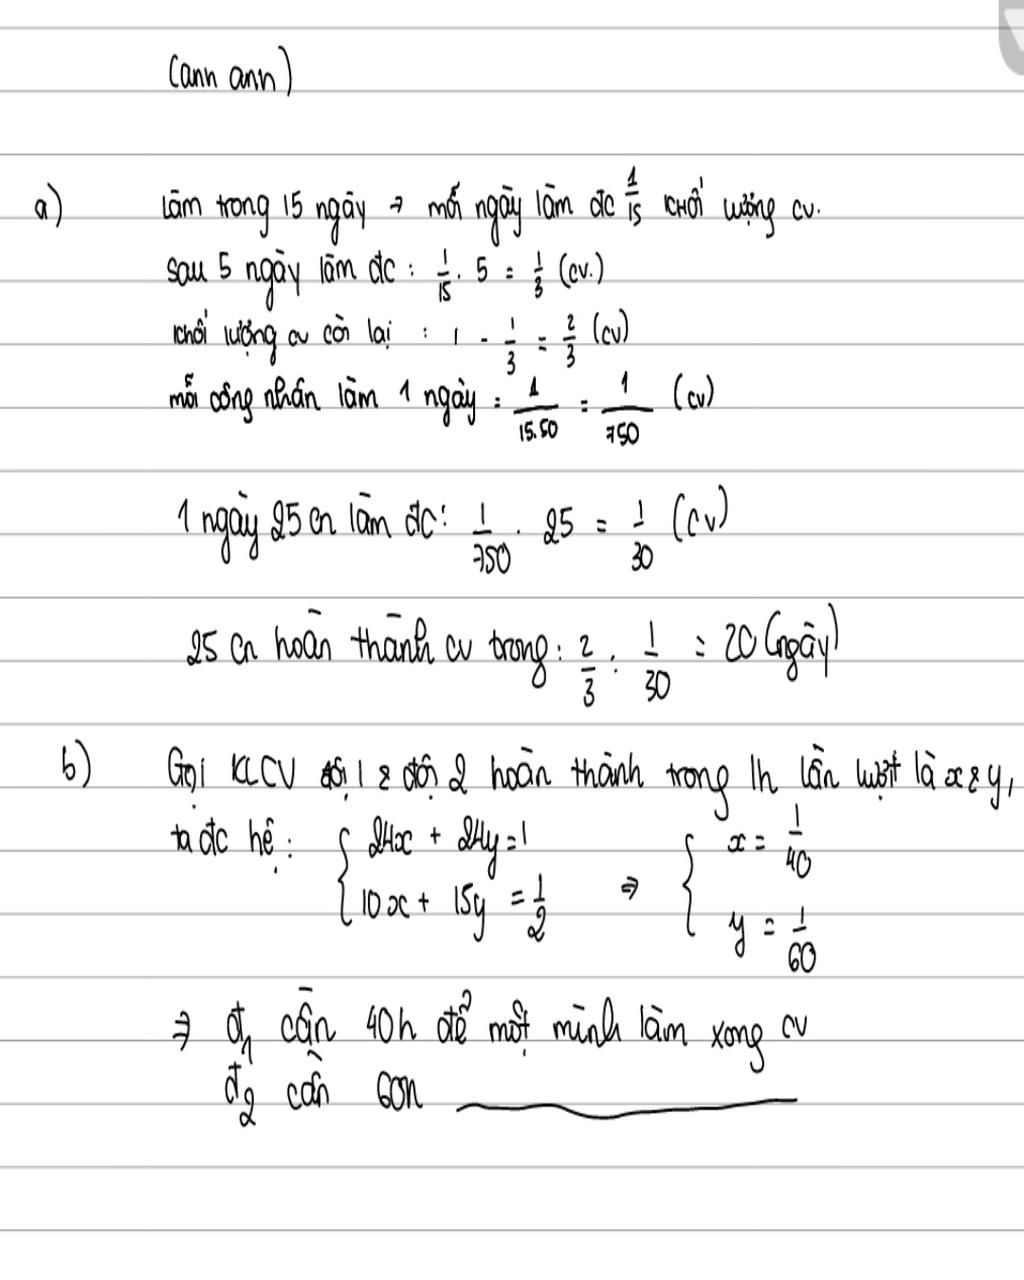 (ann ann)
a) làm trong 15 ngày → mỗi ngày làm đc 1/15 khối lượng cv.
sau 5 ngày làm đc : 1/15 . 5 = 1/3 (cv.)
khối lượng cv còn lại : 1 - 1/3 = 2/3 (cv)
mỗi công nhân làm 1 ngày : 1/15.50 = 1/750 (cv)
1 ngày 25 cn làm đc: 1/750 . 25 = 1/30 (cv)
25 cn hoàn thành cv trong : 2/3 : 1/30 = 20 (ngày)
b) Gọi KLCV đội 1 & đội 2 hoàn thành trong 1h lần lượt là x & y,
ta đc hệ : { 24x + 24y = 1 ; 10x + 15y = 1/2 ⇒ { x = 1/40 ; y = 1/60
⇒ đ1 cần 40h để một mình làm xong cv
đ2 cần 60h